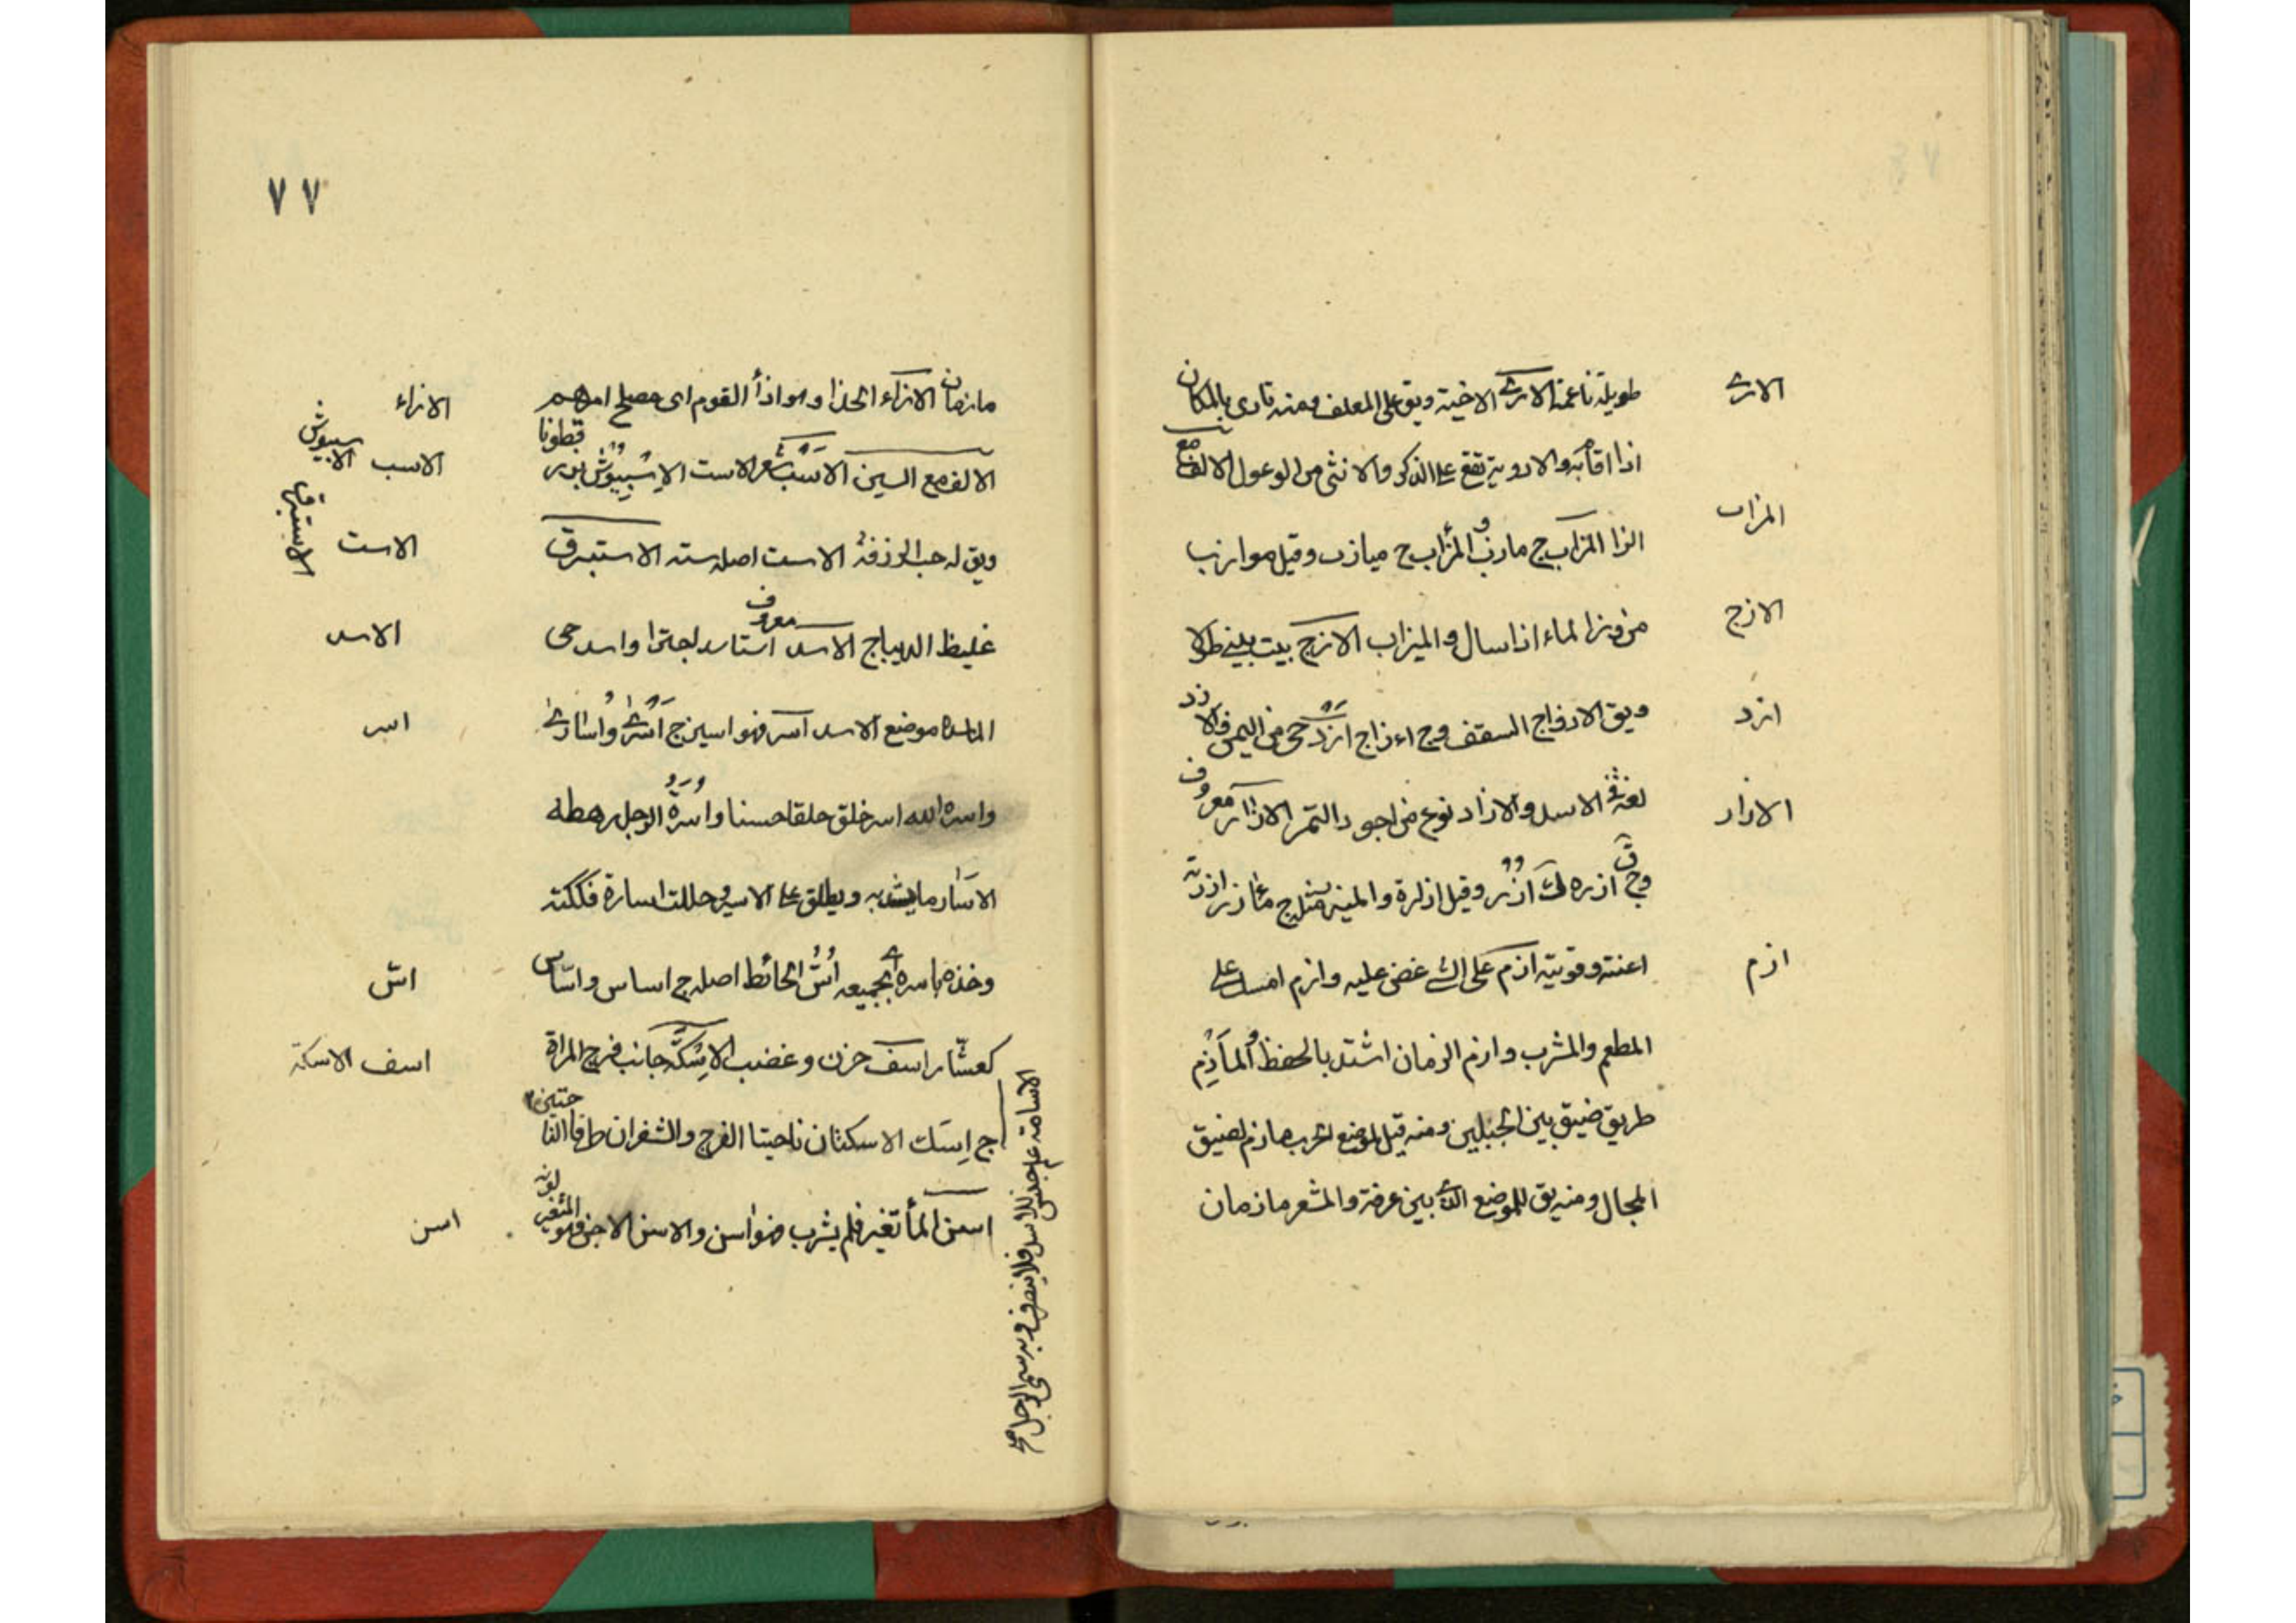 الارى
طويلة ناعمة الارى الاخية ويق على المعلف ومنه تارى بالمكان
اذا اقام به والاروية تقع على الذكر والانثى من الوعول الالف مع
المزاب
الزا المزاب ج مازب المزاب ج ميازب وقيل موازب
من وزب الماء اذا سال والميزاب الازج بيت يبنى طولا
الازج
ويق الازواج السقف وج اءزاج ازد حى من اليمن والازد
ازد
لغة فى الاسد والازاد نوع من اجود التمر الازار معروف
الازار
وج ق ازره ك ازر وقيل ازارة والميزر مثله ج مازر ازرته
اعنته وقويته ازم على الشى عض عليه وازم امسك على
ازم
المطعم والمشرب وازم الزمان اشتد بالحفظ والمأزم
طريق ضيق بين الجبلين ومنه قيل لموضع الحرب مازم لضيق
المجال ومنه يق للموضع الذى بين عرفة والمشعر مازمان
٧٧
مازمان الازاء الحذاء وهو ازأ القوم اى مصلح امرهم
الازاء
الالف مع السين الاسب شعر الاست الاسبيوش بزر قطونا
الاسب الاسبيوش
ويق له حب الزرقة الاست اصله سته الاستبرق
الاست الاستبرق
غليظ الديباج الاسد معروف استاسد اجترا واسد حى
الاسد
الماسدة موضع الاسد اسر فهو اسير ج اسرى واسارى
اسر
واسره الله اسر خلق خلقا حسنا واسرة الرجل رهطه
الاسار مايشد به ويطلق على الاسير وحللت اسارة فككته
وخذه باسره اى بجميعه اس الحائط اصله ج اساس واساس
اس
كعساس اسف حزن وغضب الاسكة جانب فرج المراة
اسف الاسكة
ج اسك الاسكتان ناحيتا الفرج والشفران طرفا الناحيتين
اسن المأ تغير فلم يشرب فهو اسن والاسن الاجن فهو المتغير لونه
اسن
الاسامة علم جنس للاسد فلا ينصرف وبه سمى الرجل صح